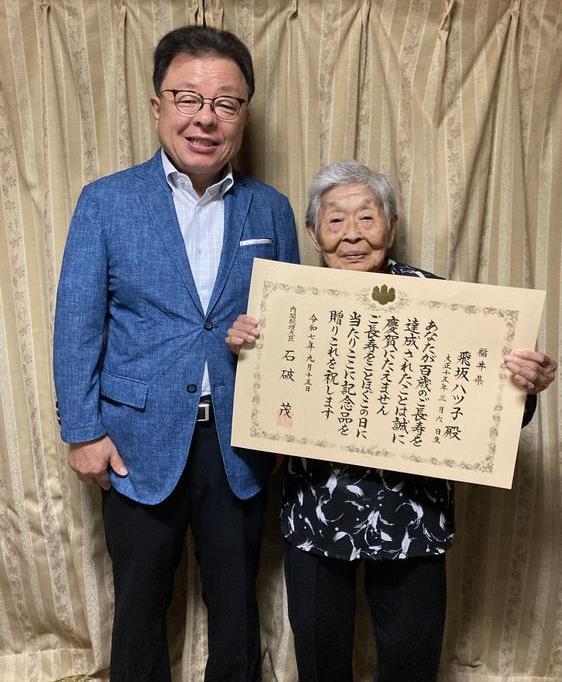 福井県
飛坂ハツ子殿
大正十五年三月六日生
あなたが百歳のご長寿を
達成されたことは誠に
慶賀にたえません
ご長寿をことほぎこの日に
当たりここに記念品を
贈りこれを祝します
令和七年九月十五日
内閣総理大臣 石破 茂